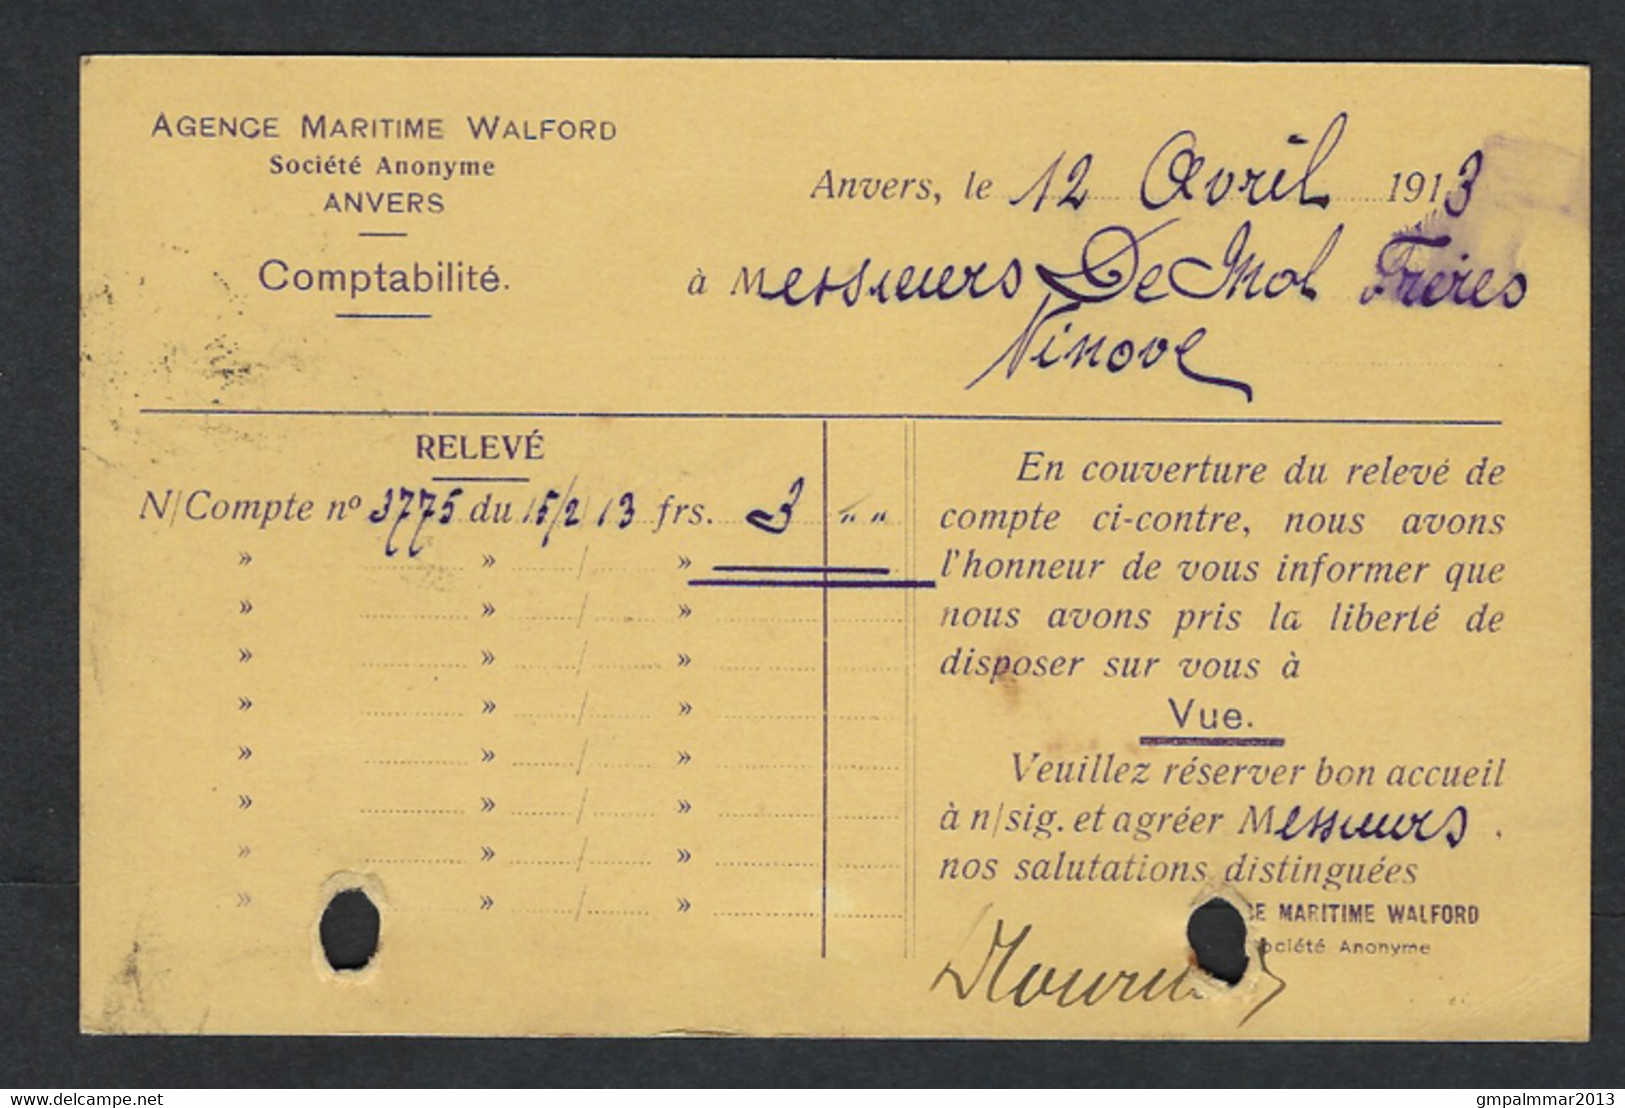 AGENCE MARITIME WALFORD
Société Anonyme
ANVERS
Comptabilité.
Anvers, le 12 Avril 1913
à Messieurs De Mol Frères
Ninove
RELEVÉ
N/Compte nº 3775 du 15/2 13 frs. 3 " "
» » / »
» » / »
» » / »
» » / »
» » / »
» » / »
» » / »
» » / »
En couverture du relevé de
compte ci-contre, nous avons
l'honneur de vous informer que
nous avons pris la liberté de
disposer sur vous à
Vue.
Veuillez réserver bon accueil
à n/sig. et agréer Messieurs.
nos salutations distinguées
CE MARITIME WALFORD
ociété Anonyme
gmpalmmar2013